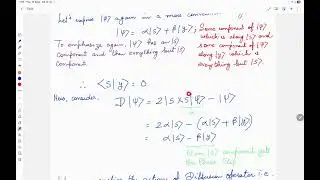 Let's define |ψ⟩ again in a more convenient
|ψ⟩ = α|S⟩ + β|y⟩ ; Some component of |ψ⟩
which is along |S⟩ and
some component of |ψ⟩
along |y⟩ which is
everything but |S⟩.
To emphasize again, |ψ⟩ has an |S⟩
Component and then everything but |S⟩
Component.
∴ ⟨S|y⟩ = 0
Now, consider. D|ψ⟩ = 2|S⟩⟨S|ψ⟩ - |ψ⟩
= 2α|S⟩ - (α|S⟩ + β|y⟩)
= α|S⟩ - β|y⟩
Non |S⟩ component gets
the action of Diffusion operator i.e.